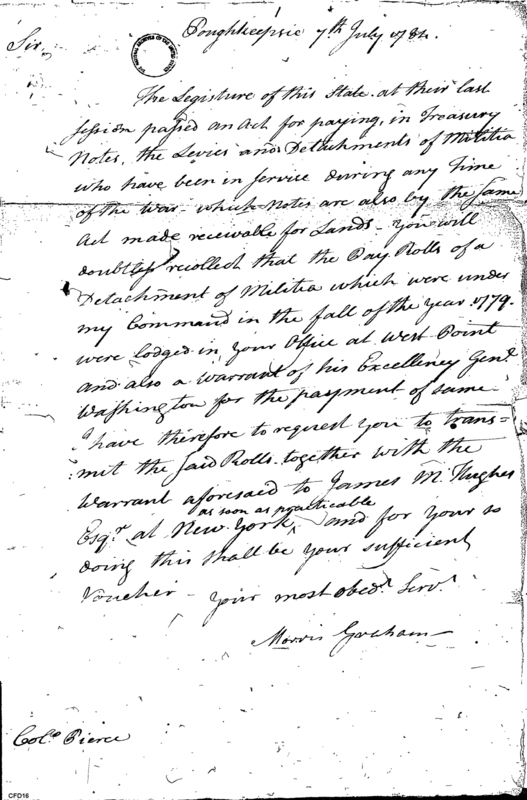 Poughkeepsie 7th July 1784.
Sir,
THE NATIONAL ARCHIVES OF THE UNITED STATES
The Legisture of this State at their last
session passed an Act for paying, in Treasury
Notes, the Levies and Detachments of Militia
who have been in service during any Time
of the War - which Notes are also by the same
Act made receivable for Lands - you will
doubtless recollect that the Pay Rolls of a
Detachment of Militia which were under
my Command in the fall of the year 1779.
were lodged in your Office at West Point
and also a warrant of his Excellency Genl.
Washington for the payment of same -
I have therefore to request you to trans=
mit the said Rolls together with the
Warrant aforesaid to James M. Hughes
as soon as practicable
Esqr. at New York, and for your so
doing this shall be your sufficient
Voucher - your most obedt. Servt.
Morris Graham -
Colo. Pierce
CFD16